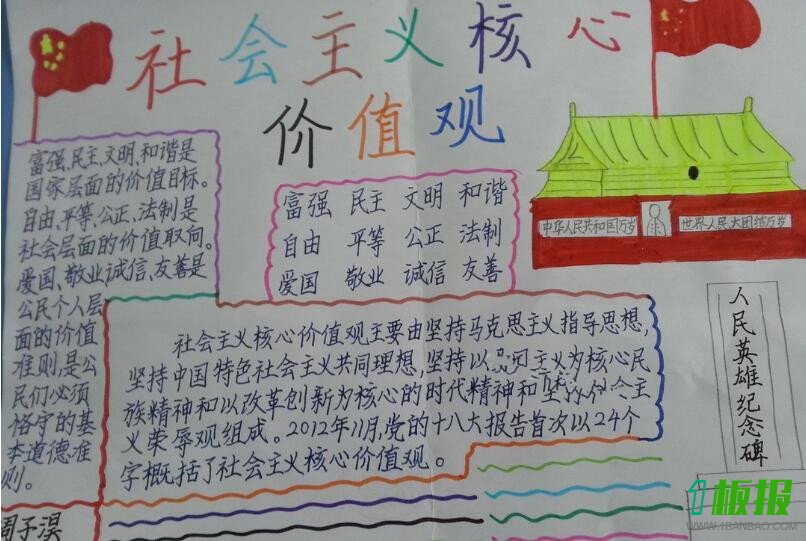 社会主义核心
价值观
富强、民主、文明、和谐是
国家层面的价值目标。
自由、平等、公正、法制是
社会层面的价值取向。
爱国、敬业诚信、友善是
公民个人层
面的价值
准则是公
民们必须
恪守的基
本道德准
则。
富强 民主 文明 和谐
自由 平等 公正 法制
爱国 敬业 诚信 友善
中华人民共和国万岁
世界人民大团结万岁
社会主义核心价值观主要由坚持马克思主义指导思想,
坚持中国特色社会主义共同理想,坚持以主义为核心民
族精神和以改革创新为核心的时代精神和坚会主
义荣辱观组成。2012年11月,党的十八大报告首次以24个
字概括了社会主义核心价值观。
人民英雄纪念碑
周子淏
1板报
WWW.1BANBAO.COM